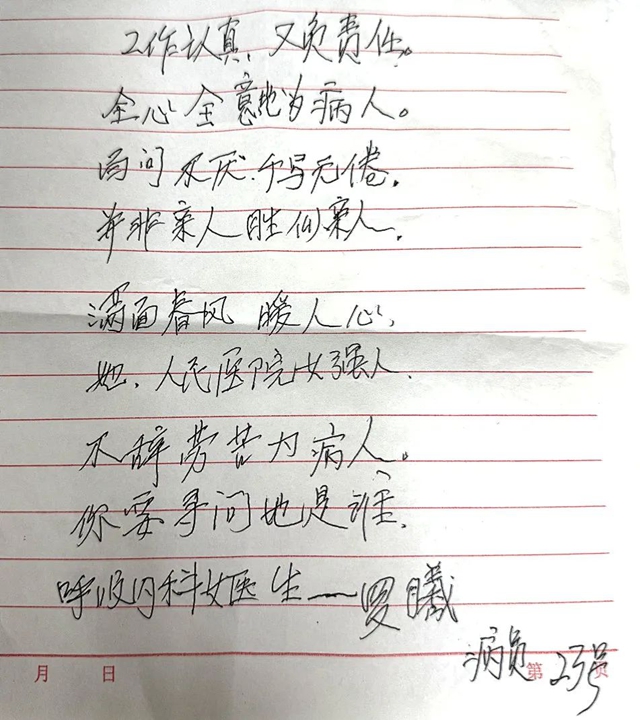 工作认真,又负责任。
全心全意就为病人。
百问不厌.千写无倦.
并非亲人胜似亲人.
满面春风 暖人心,
她.人民医院女强人.
不辞劳苦为病人。
你要寻问她是谁.
呼吸内科女医生——罗曦
病员 23号
月 日 第 页